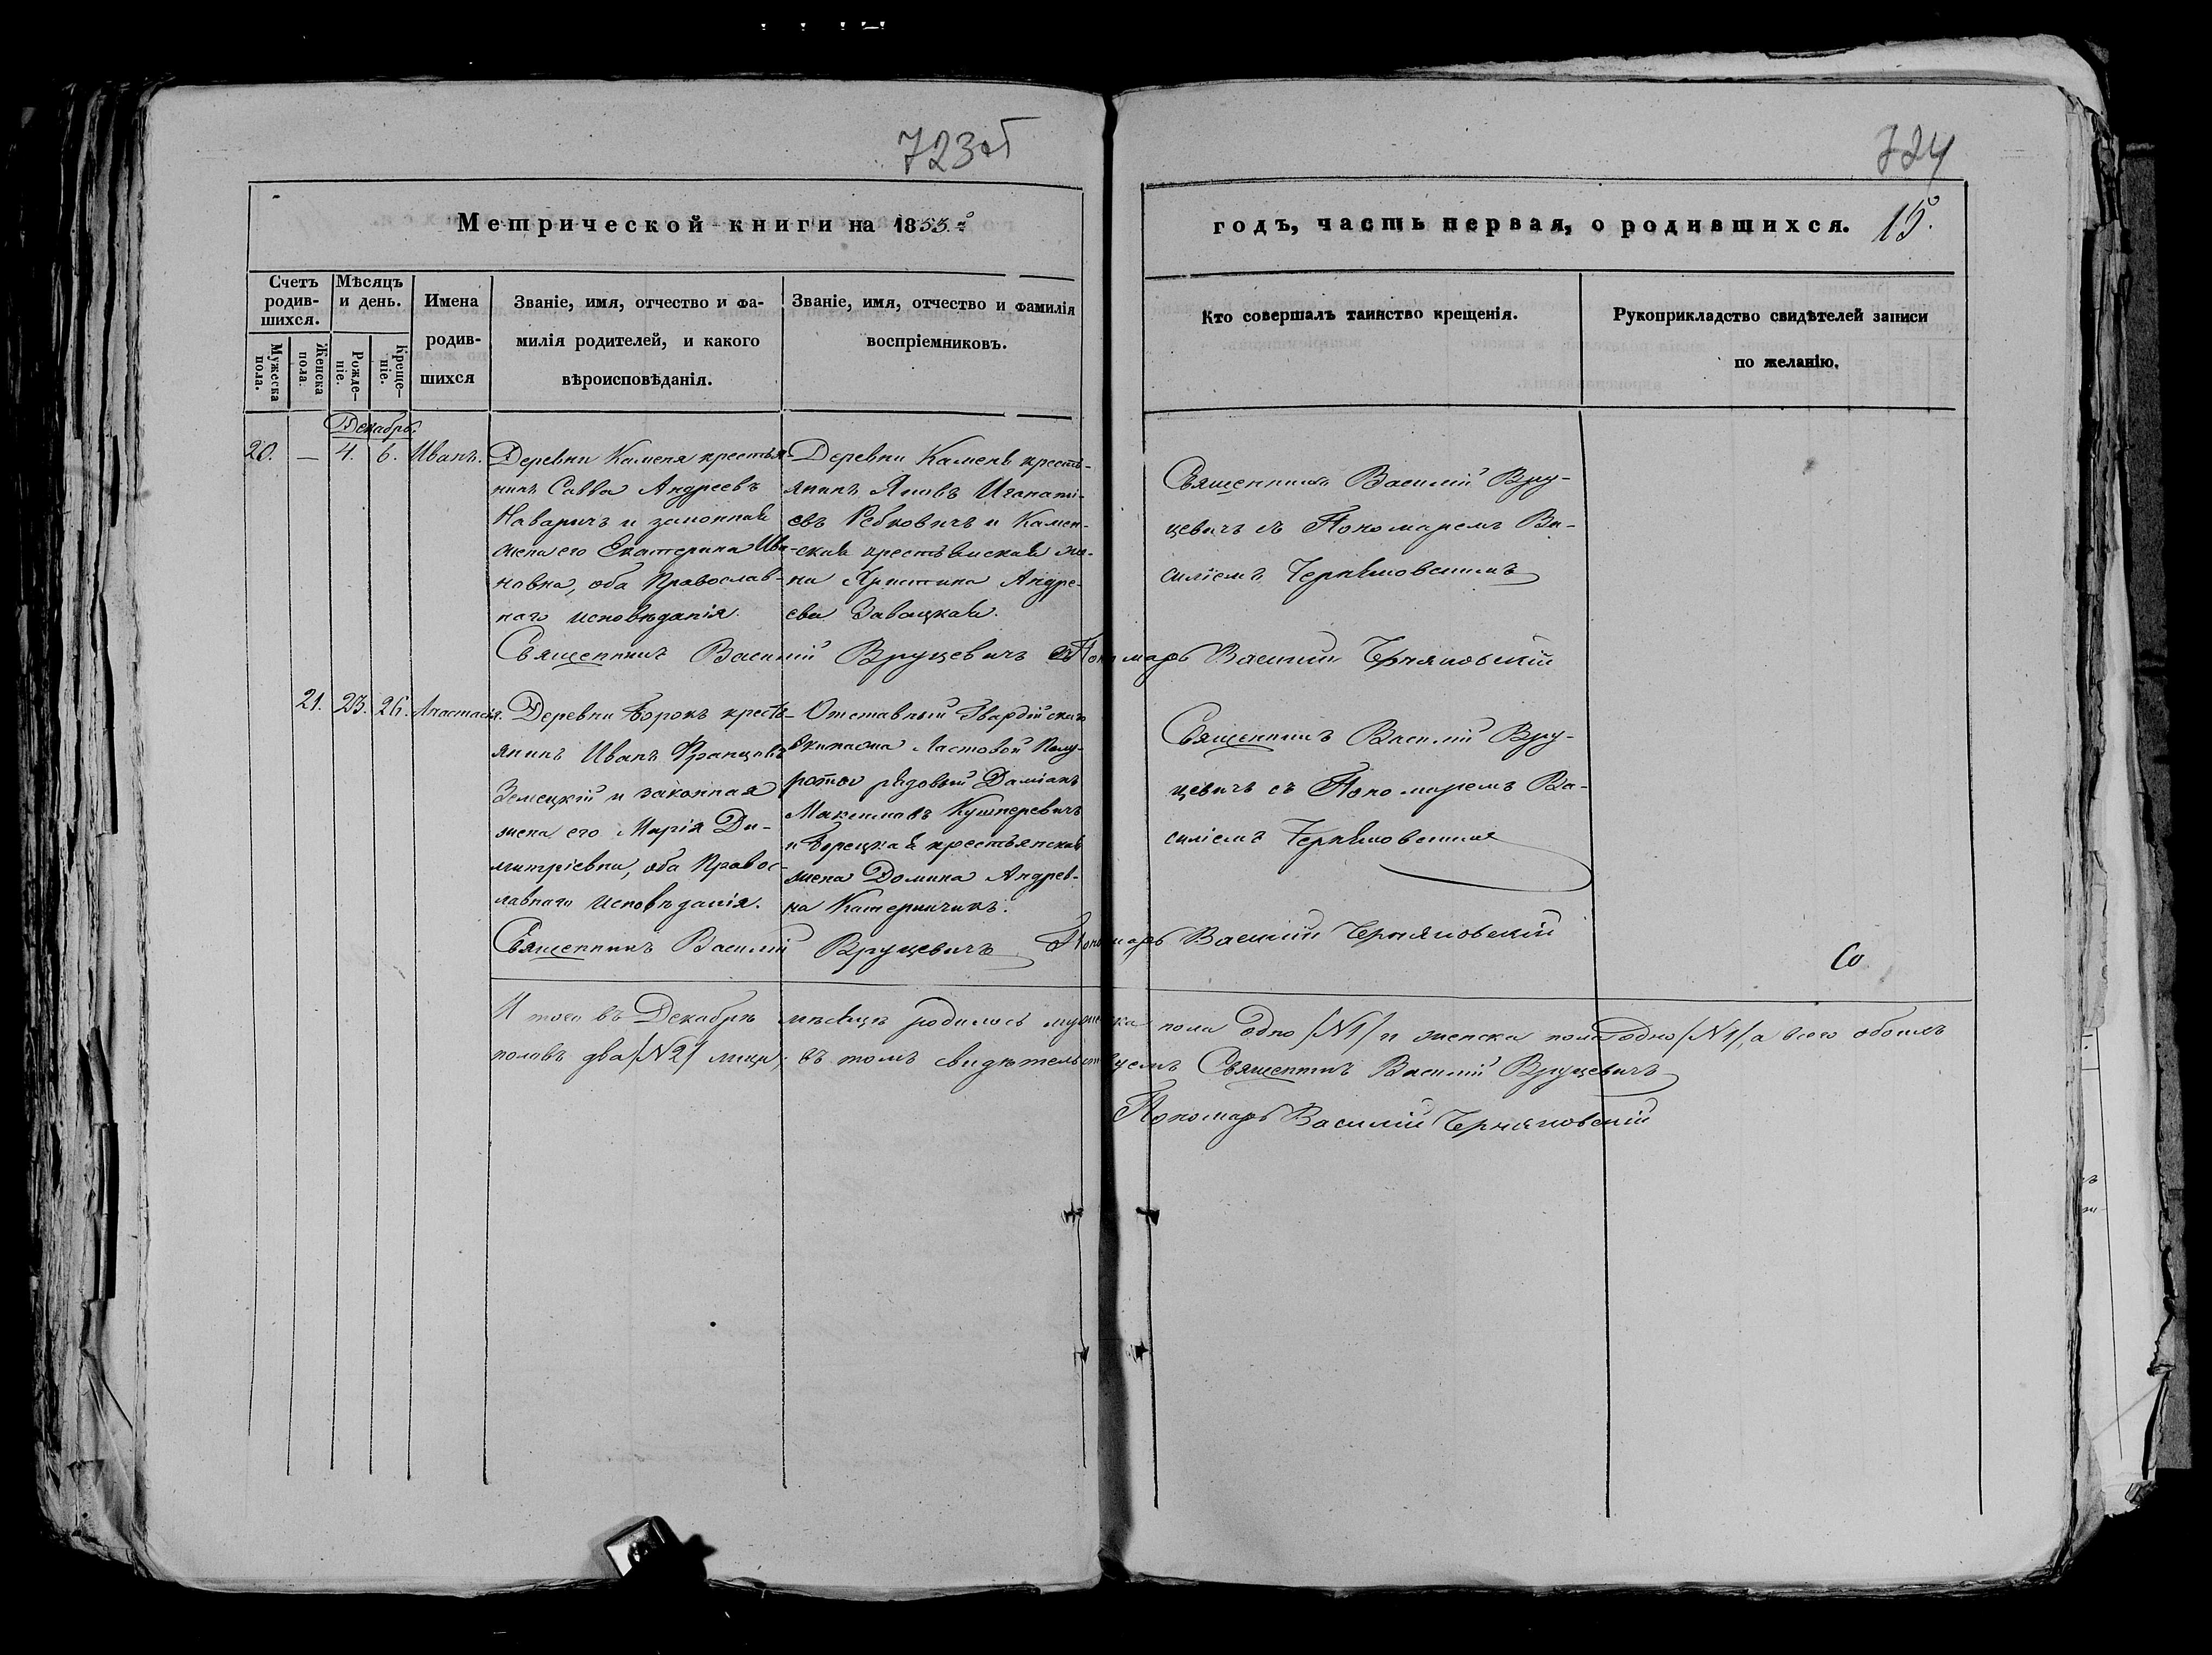 723об
724
Метрической книги на 1853й
годъ, часть первая, о родившихся.
15.
Счетъ родив-шихся.
Мѣсяцъ и день.
Имена родив-шихся
Званіе, имя, отчество и фа-
милія родителей, и какого
вѣроисповѣданія.
Званіе, имя, отчество и фамилія
воспріемниковъ.
Кто совершалъ таинство крещенія.
Рукоприкладство свидѣтелей записи
по желанію.
Мужеска пола.
Женска пола.
Рожде-ніе.
Креще-ніе.
Декабрь.
20. — 4. 6. Иванъ.
Деревни Каменя крестья-
нинъ Савва Андреевъ
Наваричъ и законная
жена его Екатерина Ива-
новна, оба Православ-
наго исповѣданія.
Деревни Камень кресть-
янинъ Яковъ Игнаті-
евъ Ребковичъ и Камен-
ская крестьянская же-
на Христина Андре-
ева Завацкая.
Священникъ Василій Вру-
цевичъ съ Пономаремъ Ва-
силіемъ Черняковскимъ
Священникъ Василій Вруцевичъ Пономарь Василій Черняковскій
21. 23. 26. Анастасія.
Деревни Борокъ кресть-
янинъ Иванъ Францовъ
Земецкій и законная
жена его Марія Ди-
митріевна, оба Правос-
лавнаго Исповѣданія.
Отставный Гвардійскаго
Экипажа Ластовой Полу-
роты рядовый Даміанъ
Максимовъ Кушнеревичъ
и Борецкая крестьянская
жена Домна Андрев-
на Катерничикъ.
Священникъ Василій Вру-
цевичъ съ Пономаремъ Ва-
силіемъ Черняковскимъ
Священникъ Василій Вруцевичъ Пономарь Василій Черняковскій
Со
И того въ Декабрѣ мѣсяцѣ родилось мужеска пола одно /№1/ и женска пола одно /№1/, а всего обоихъ
половъ два /№2/ лица; въ томъ свидѣтельствуемъ Священникъ Василій Вруцевичъ
Пономарь Василій Черняковскій